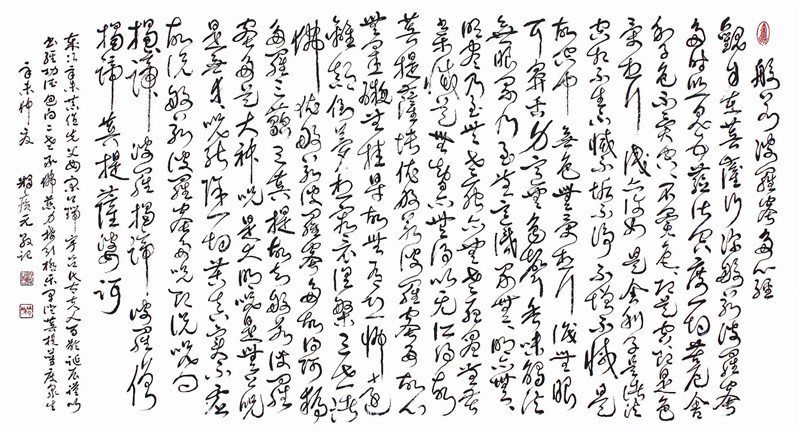 般若波羅蜜多心經
觀自在菩薩行深般若波羅蜜
多時照見五蘊皆空度一切苦厄舍
利子色不異空空不異色色即是空空即是色
受想行識亦復如是舍利子是諸法
空相不生不滅不垢不淨不增不減是
故空中無色無受想行識無眼
耳鼻舌身意無色聲香味觸法
無眼界乃至無意識界無無明亦無無
明盡乃至無老死亦無老死盡無苦
集滅道無智亦無得以无所得故
菩提薩埵依般若波羅蜜多故心
無罣礙無罣礙故無有恐怖遠
離顛倒夢想究竟涅槃三世諸
佛依般若波羅蜜多故得阿耨
多羅三藐三菩提故知般若波羅
蜜多是大神咒是大明咒是無上咒
是無等等咒能除一切苦真實不虛
故說般若波羅蜜多咒即說咒曰
揭諦揭諦波羅揭諦波羅僧
揭諦菩提薩婆訶
書經功德迴向二老承佛慈力接引極樂早證菩提普度眾生
辛未仲夏 元敬記